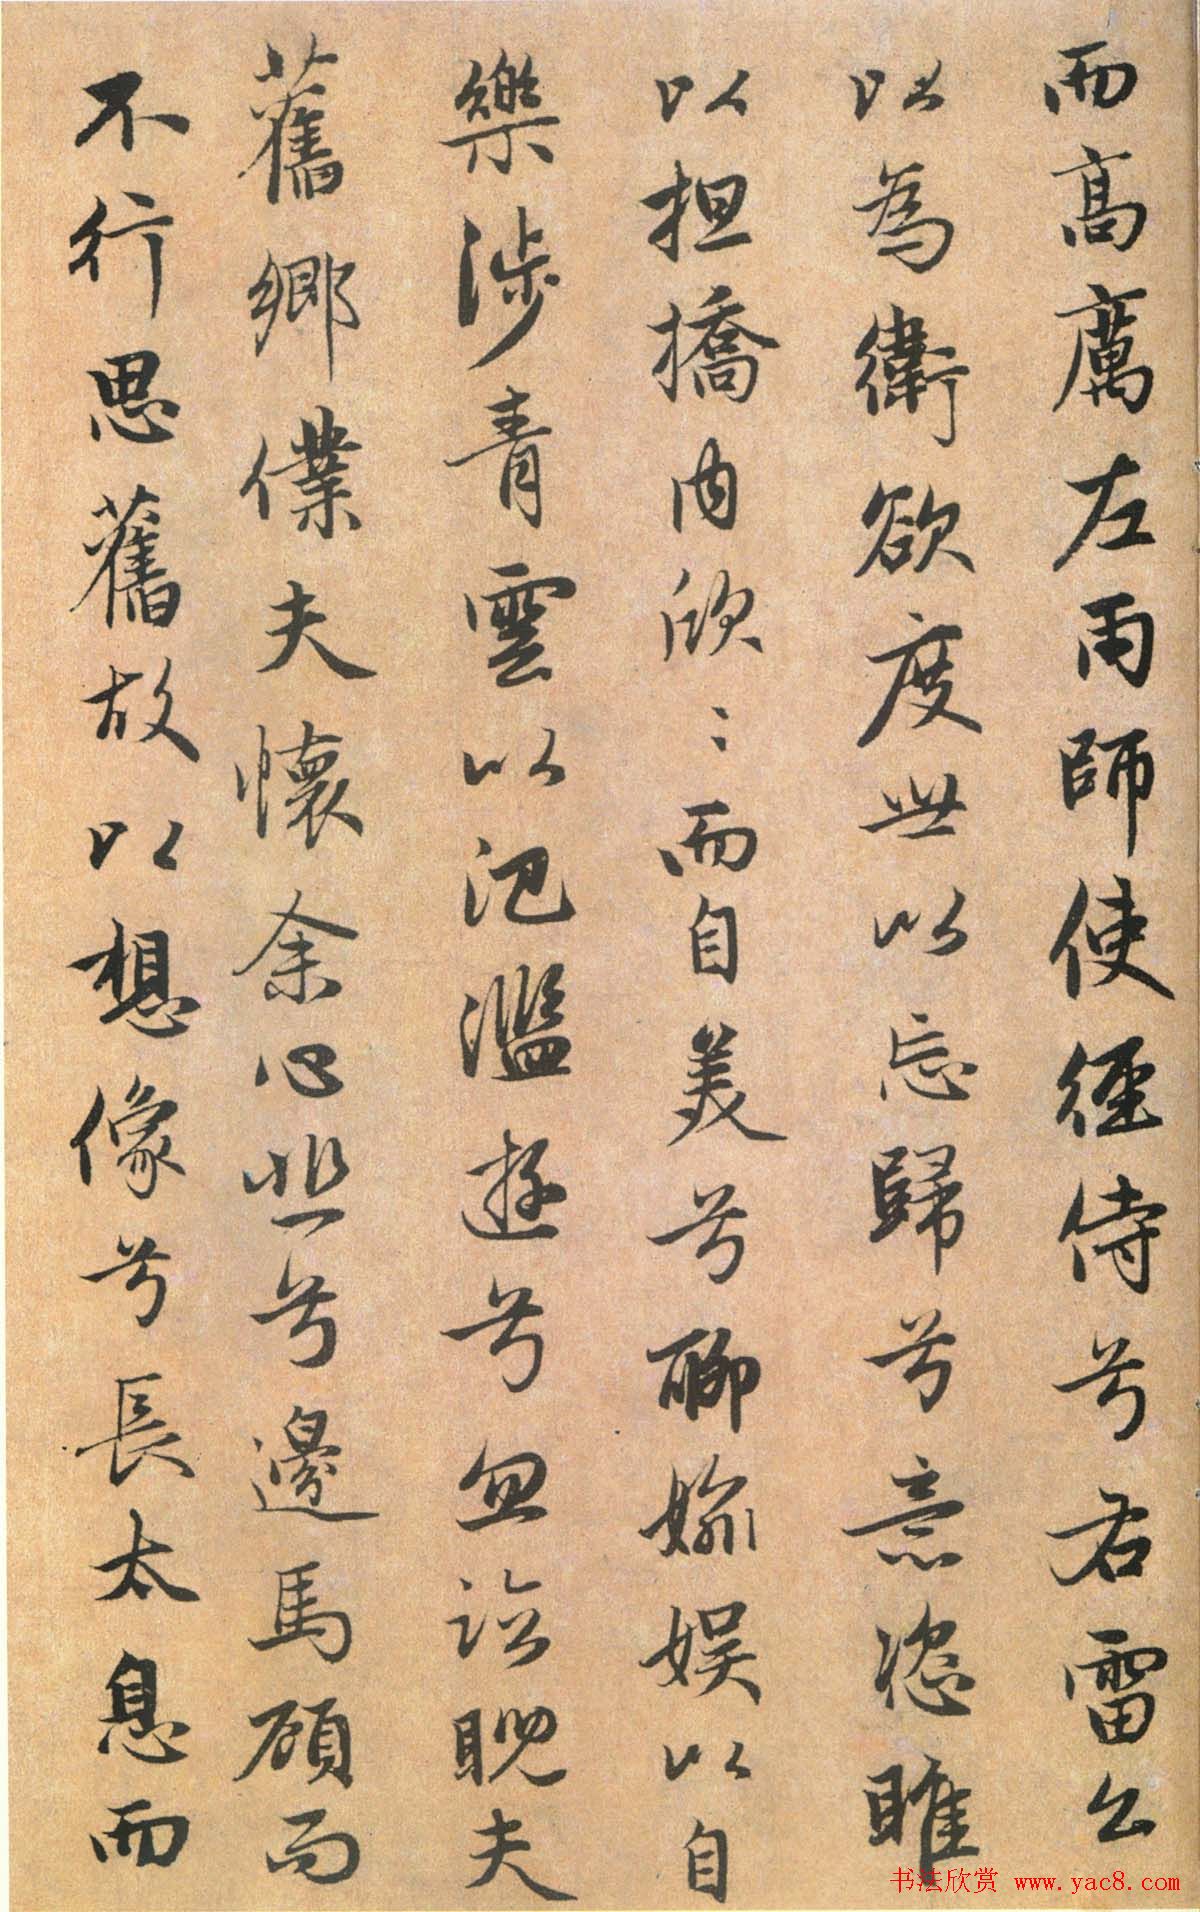 而高厲左雨師使徑侍兮右雷公
以為衛欲度世以忘歸兮意恣睢
以担撟内欣〻而自美兮聊媮娱以自
樂涉青雲以汜濫遊兮忽臨睨夫
舊鄉僕夫懷余心悲兮邊馬顧而
不行思舊故以想像兮長太息而
书法欣赏 www.yac8.com